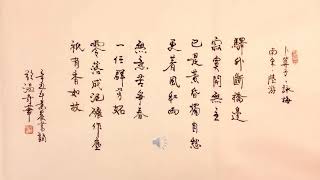 卜算子·詠梅
南宋 陸游
驛外斷橋邊
寂寞開無主
已是黃昏獨自愁
更著風和雨
無意苦爭春
一任群芳妬
零落成泥碾作塵
祇有香如故